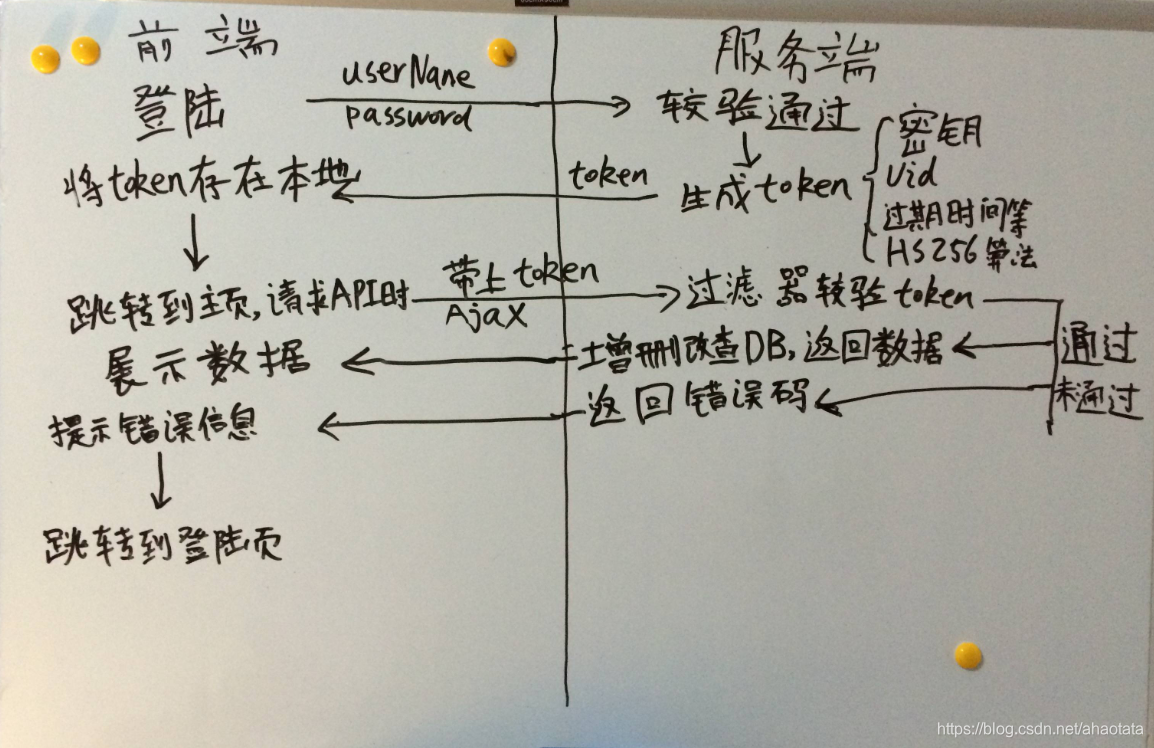 前端
服务端
登陆
userName
password
较验通过
密钥
Uid
过期时间等
HS256算法
将token存在本地
token
生成token
跳转到主页,请求API时
带上token
Ajax
过滤器较验token
通过
展示数据
增删改查DB,返回数据
未通过
提示错误信息
返回错误码
跳转到登陆页
https://blog.csdn.net/ahaotata